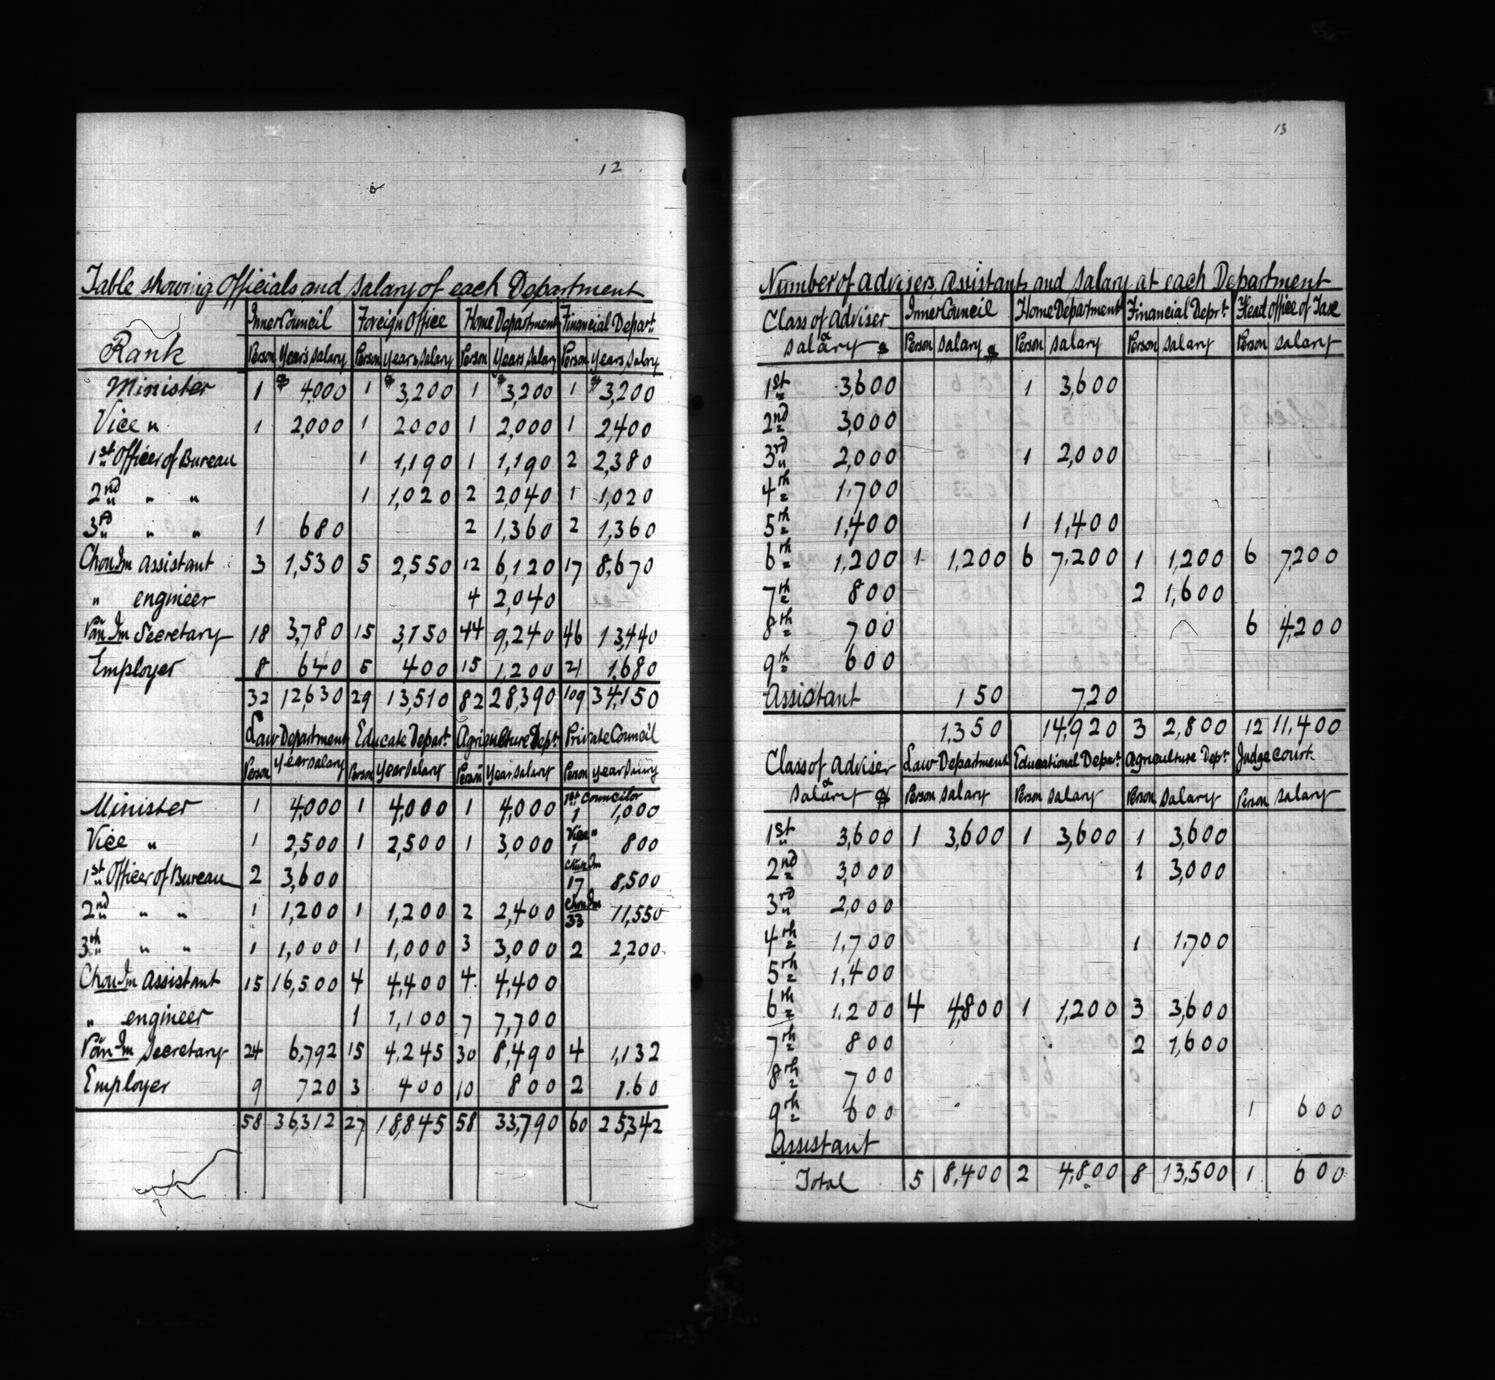 12
Table showing Officials and Salary of each Department
Inner Council Foreign Office Home Department Financial Depart.
Rank Person Years Salary Person Years Salary Person Years Salary Person Years Salary
Minister 1 $ 4,000 1 $ 3,200 1 $ 3,200 1 $ 3,200
Vice " 1 2,000 1 2000 1 2,000 1 2400
1st Officer of Bureau 1 1,190 1 1,190 2 2,380
2nd " " 1 1,020 2 2,040 1 1,020
3rd " " 1 680 2 1,360 2 1,360
Chou Im assistant 3 1,530 5 2,550 12 6,120 17 8,670
" engineer 4 2,040
Pan Im Secretary 18 3,780 15 3,150 44 9,240 46 13,440
Employer 8 640 5 400 15 1,200 21 1,680
32 12,630 29 13,510 82 28,390 109 34,150
Law Department Educate Depart. Agriculture Dept. Private Council
Person year salary Person Year Salary Person Year Salary Person year salary
1st Councilor
Minister 1 4,000 1 4,000 1 4,000 1 1,000
Vice "
Vice " 1 2,500 1 2,500 1 3,000 1 800
1st Officer of Bureau 2 3,600 17 8,500
2nd " " 1 1,200 1 1,200 2 2,400 Chou Im 33 11,550
3th " " 1 1,000 1 1,000 3 3,000 2 2,200
Chou Im assistant 15 16,500 4 4,400 4 4,400
" engineer 1 1,100 7 7,700
Pan Im Secretary 24 6,792 15 4,245 30 8,490 4 1,132
Employer 9 720 3 400 10 800 2 1.60
58 36,312 27 18,845 58 33,790 60 25,342
13
Number of advisers, assistant and salary at each Department
Class of adviser Inner Council Home Department Financial Dept. Head office of Tax
& Salary $ Person Salary $ Person Salary Person Salary Person Salary
1st 3,600 1 3,600
2nd 3,000
3rd 2,000 1 2,000
4th 1,700
5th 1,400 1 1,400
6th 1,200 1 1,200 6 7,200 1 1,200 6 7,200
7th 800 2 1,600
8th 700 6 4,200
9th 600
Assistant 150 720
1,350 14,920 3 2,800 12 11,400
Class of adviser Law Department Educational Depart. Agriculture Dept. Judge Court.
& Salary $ Person Salary Person Salary Person Salary Person Salary
1st 3,600 1 3,600 1 3,600 1 3,600
2nd 3,000 1 3,000
3rd 2,000
4th 1,700 1 1,700
5th 1,400
6th 1,200 4 4,800 1 1,200 3 3,600
7th 800 2 1,600
8th 700
9th 600 1 600
Assistant
Total 5 8,400 2 4,800 8 13,500 1 600